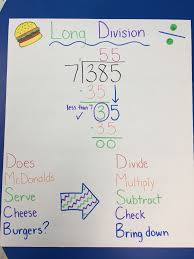 Long Division
55
7 385
-35
less than 7 35
-35
00
Does
McDonalds
Serve
Cheese
Burgers?
Divide
Multiply
Subtract
Check
Bring down